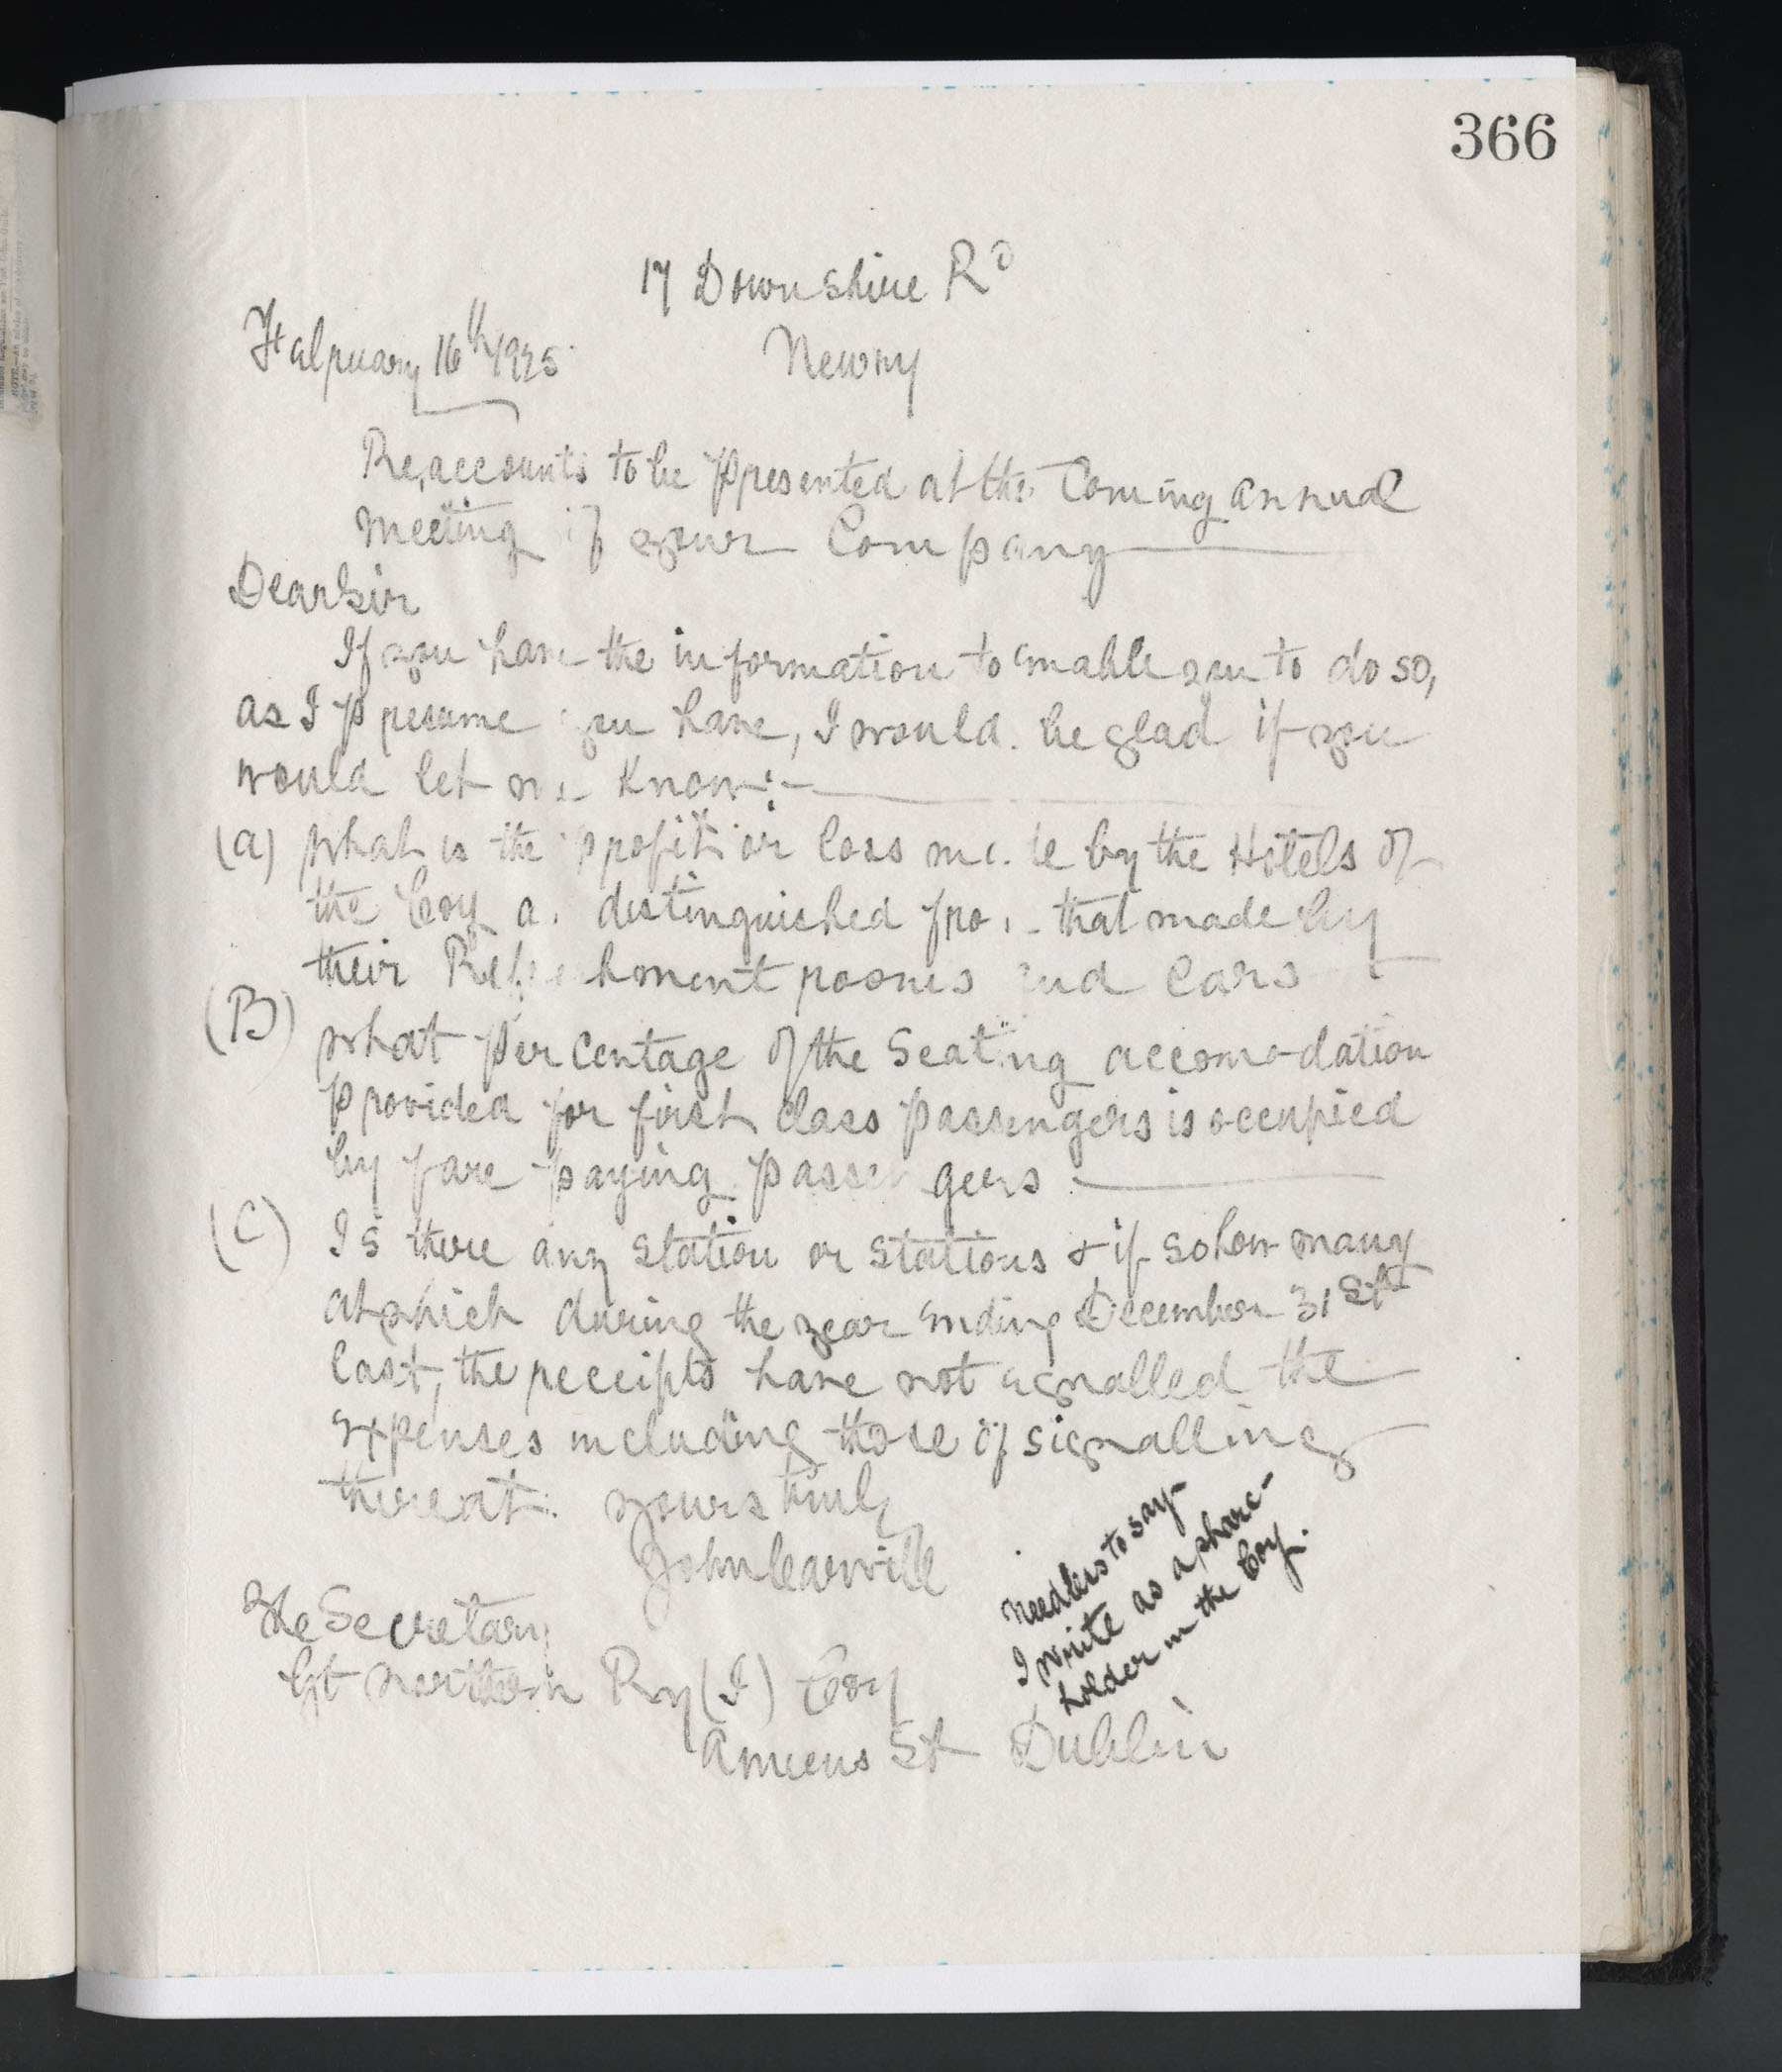 366
17 Downshire Rd
February 16th 1925
Newry
Re, accounts to be presented at the Coming annual
meeting of your Company
Dear Sir
If you have the information to enable you to do so,
as I presume you have, I would be glad if you
would let me know:-
(a) what is the profit or loss made by the Hotels of
the Coy as distinguished from that made by
their Refreshment rooms and Cars
(B)
what per centage of the Seating accomodation
provided for first class passengers is occupied
by fare paying passengers
(C) Is there any station or stations & if so how many
at which during the year ending December 31st
last, the receipts have not equalled the
expenses including those of signalling
thereat. yours truly
John
The Secretary
Gt northern Ry (I) Coy
Amiens St Dublin
needless to say
I write as a share-
holder in the Coy.